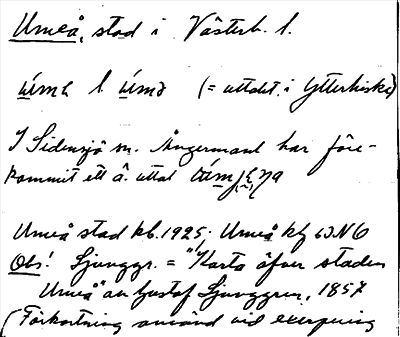 Umeå, stad i Västerb. l.
(= uttalet i Ytterhiske)
I Sidensjö m. Ångermanl har före-
kommit ett å. uttal
Umeå stad kb. 1925. Umeå kf
Obs! Ljunggr. = "Karta öfver staden
Umeå" av Gustaf Ljunggren, 1857
(Förkortning använd vid excerpering